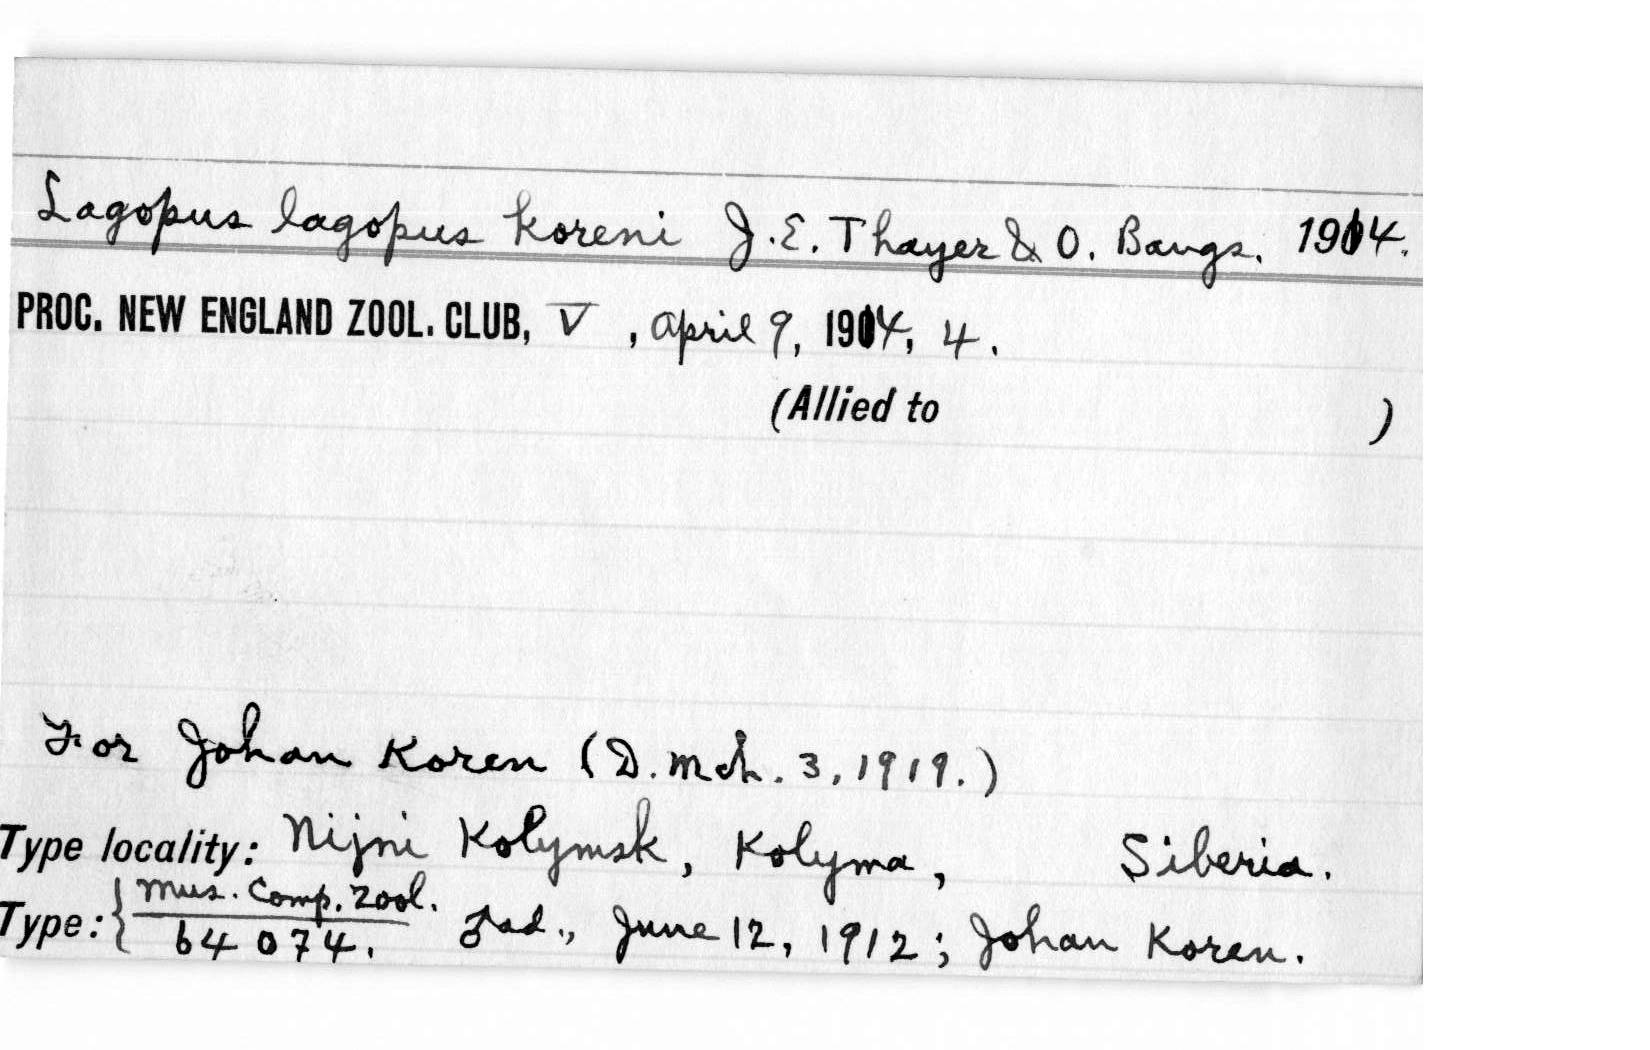 Lagopus lagopus koreni J. E. Thayer & O. Bangs. 1914.
PROC. NEW ENGLAND ZOOL. CLUB, V, April 9, 1914, 4.
(Allied to )
For Johan Koren (D. Mch. 3, 1919.)
Type locality: Nijni Kolymsk, Kolyma, Siberia.
Type: { Mus. Comp. Zool.
64074. ♂ ad., June 12, 1912; Johan Koren.